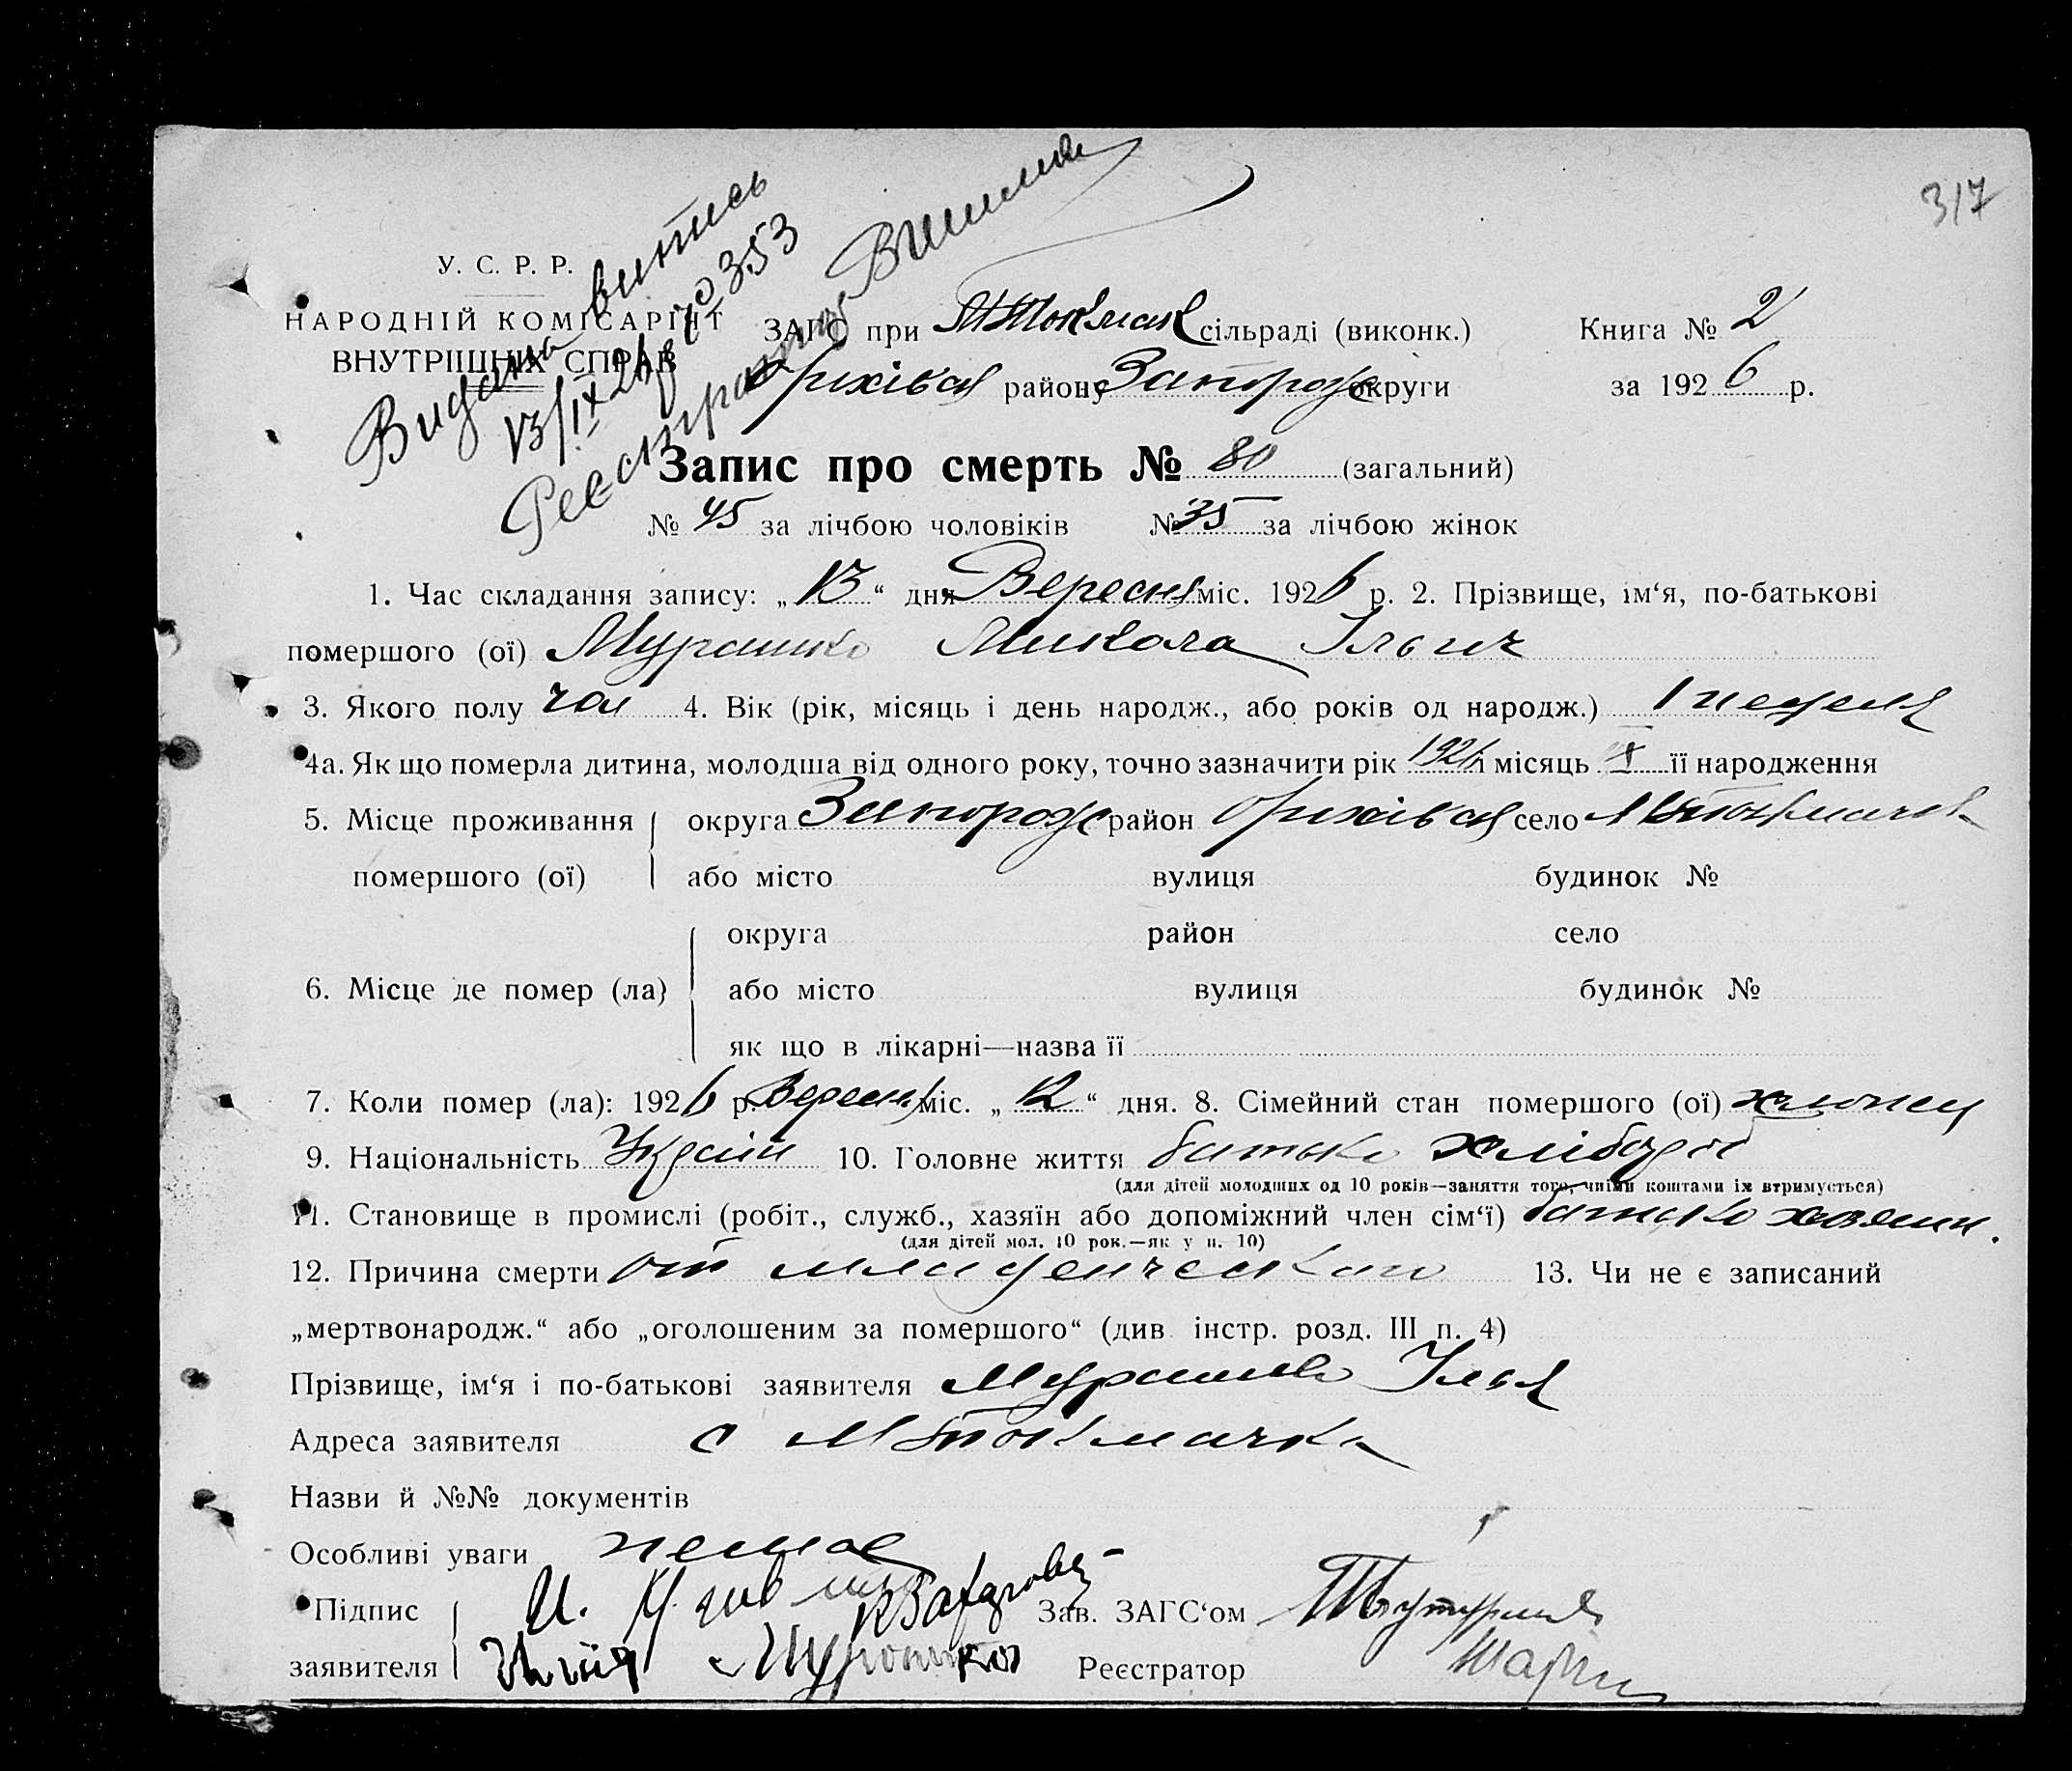 317
Видана випись
13/IX 26 р № 353
Реєстратор
У. С. Р. Р.
НАРОДНІЙ КОМІСАРІЯТ
ВНУТРІШНІХ СПРАВ
ЗАГС при М Токмац сільраді (виконк.) Книга № 2
Оріхівськ району Запорозьк округи за 1926 р.
Запис про смерть № 80 (загальний)
№ 45 за лічбою чоловіків № 35 за лічбою жінок
1. Час складання запису: „13“ дня Вересня міс. 1926 р. 2. Прізвище, ім‘я, по-батькові
помершого (ої) Мурашко Микола Ільич
3. Якого полу чол 4. Вік (рік, місяць і день народж., або років од народж.) 1 неделя
4а. Як що померла дитина, молодша від одного року, точно зазначити рік 1926 місяць її народження
5. Місце проживання округа Запорозьк район Оріхівськ село М Токмачка
помершого (ої) або місто вулиця будинок №
округа район село
6. Місце де помер (ла) або місто вулиця будинок №
як що в лікарні—назва її
7. Коли помер (ла): 1926 р. Вересня міс. „12“ дня. 8. Сімейний стан помершого (ої) хлопец
9. Національність Україн 10. Головне життя батько хлібороб
(для дітей молодших од 10 років—заняття того, чиїми коштами їх втримується)
11. Становище в промислі (робіт., служб., хазяїн або допоміжний член сім‘ї) батько хазяин.
(для дітей мол. 10 рок.—як у п. 10)
12. Причина смерти от младенческаго 13. Чи не є записаний
„мертвонародж.“ або „оголошеним за помершого“ (див. інстр. розд. III п. 4)
Прізвище, ім‘я і по-батькові заявителя Мурашко Ілья
Адреса заявителя с М Токмачка
Назви й №№ документів
Особливі уваги немає
Підпис Зав. ЗАГС‘ом
заявителя Илія Мурашко Реєстратор